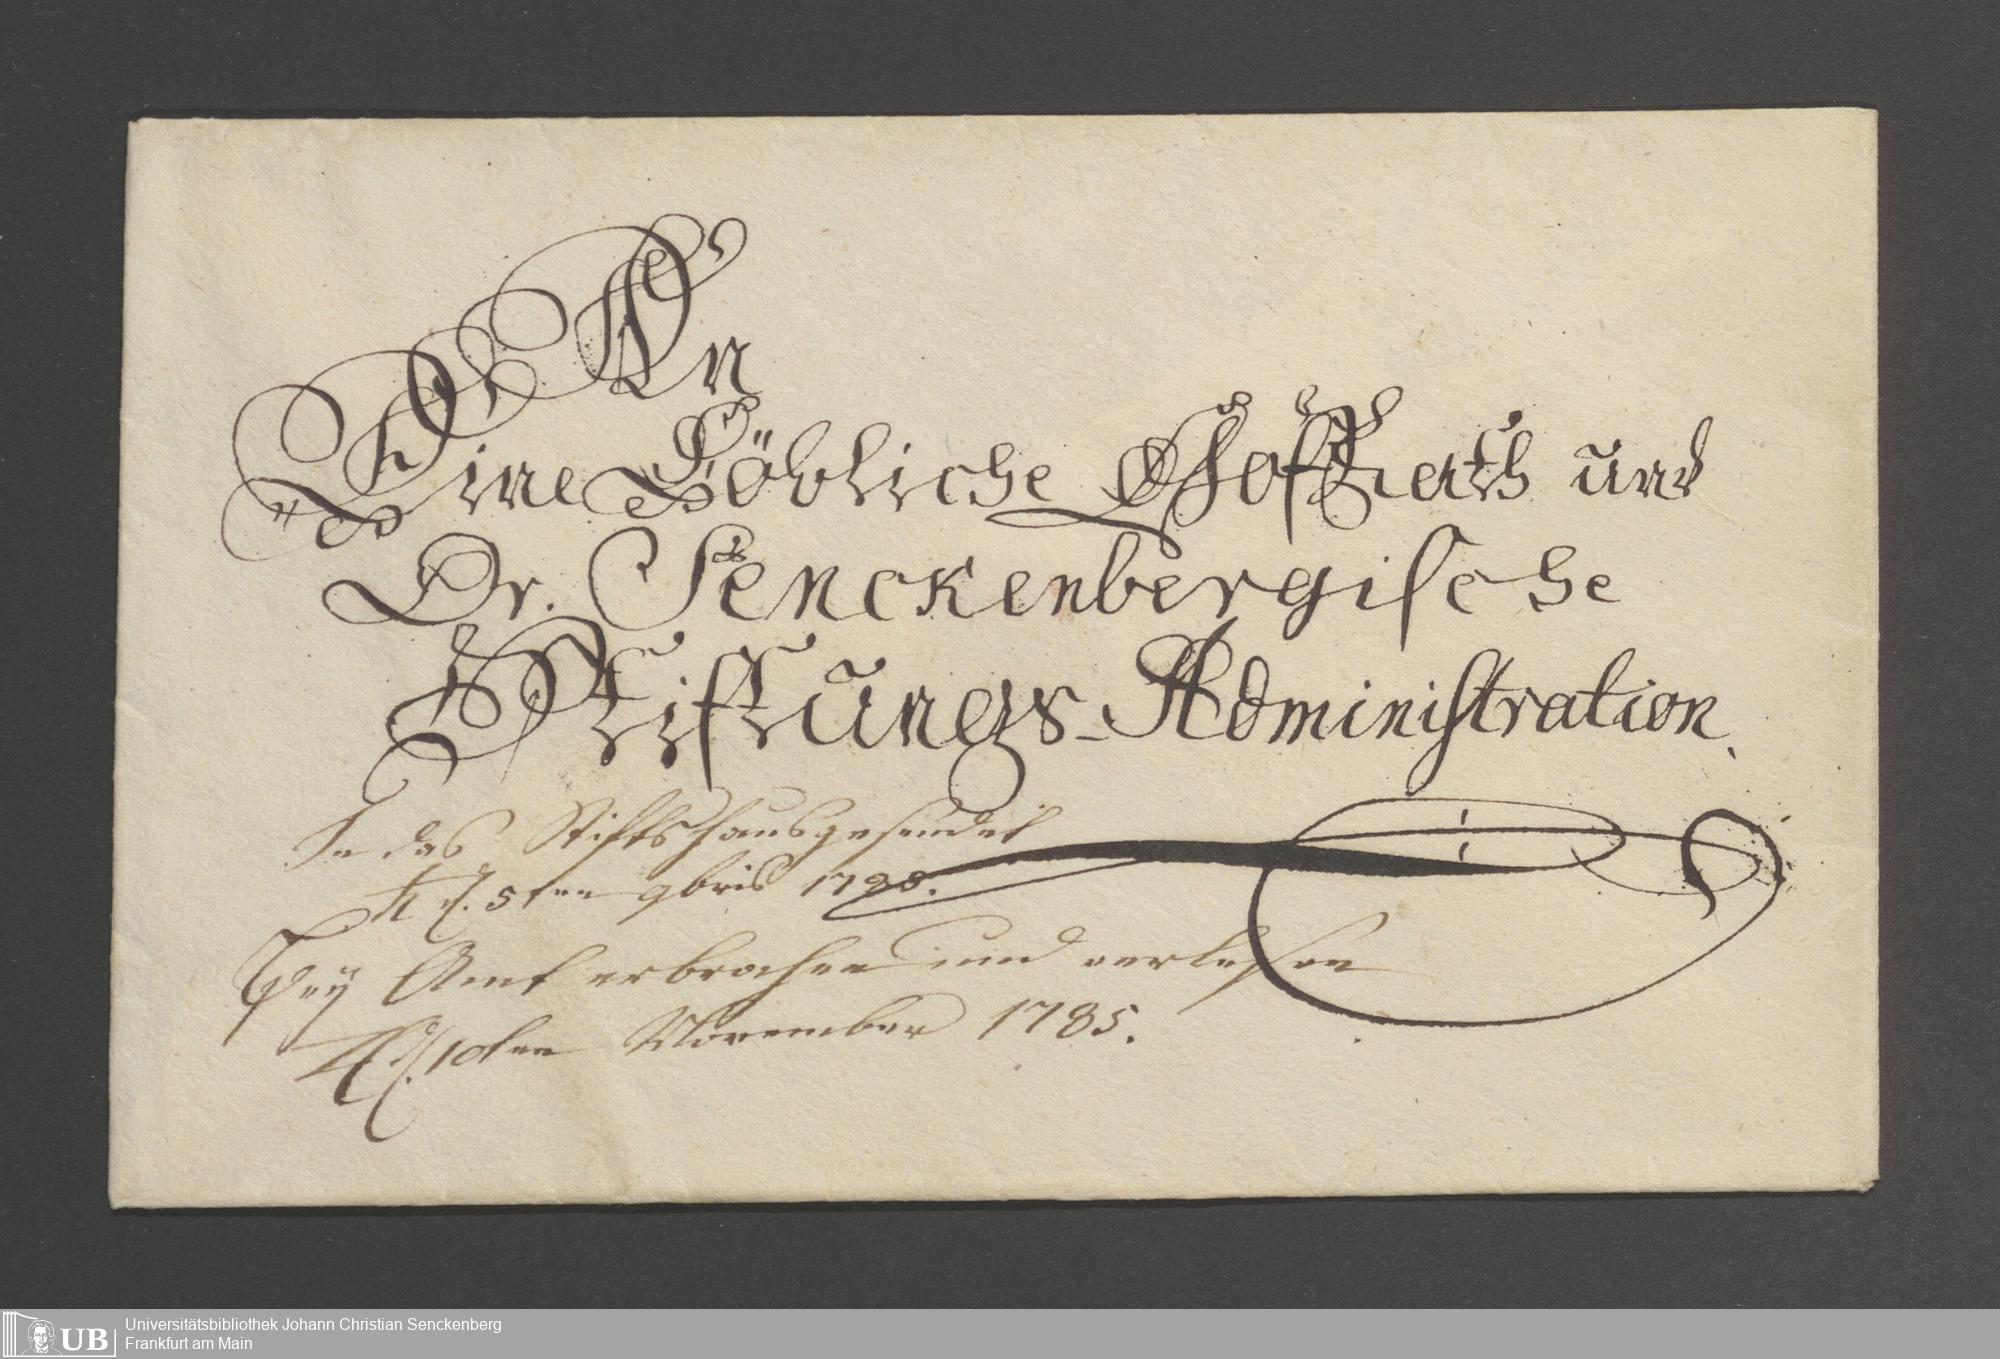 An
Eine Löbliche HofRath und
Dr. Senckenbergische
Stiftungs-Administration.
In das Stiftshaus gesendet
d. 5ten 9bris 1785.
Bey Amt erbrochen und verlesen
d. 10ten November 1785.
UB
Universitätsbibliothek Johann Christian Senckenberg
Frankfurt am Main